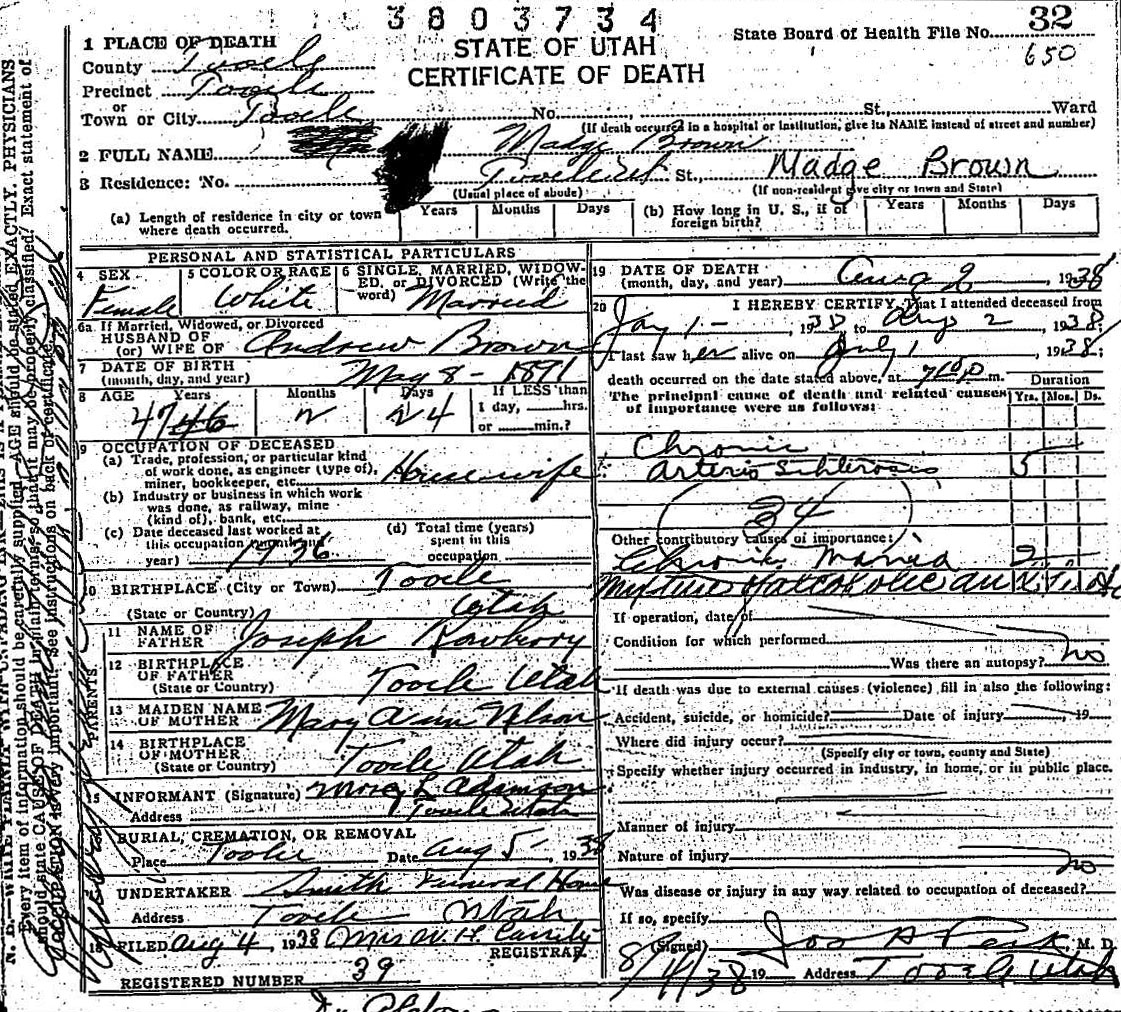 3803734
32
State Board of Health File No.
650
STATE OF UTAH
CERTIFICATE OF DEATH
1 PLACE OF DEATH
County Tooele
Precinct Tooele
or
Town or City Tooele No. St., Ward
(If death occurred in a hospital or institution, give its NAME instead of street and number)
2 FULL NAME Madge Brown
Madge Brown
3 Residence: No. Tooele Ut St.,
(Usual place of abode) (If non-resident give city or town and State)
(a) Length of residence in city or town where death occurred. Years Months Days
(b) How long in U. S., if of foreign birth? Years Months Days
PERSONAL AND STATISTICAL PARTICULARS
4 SEX Female
5 COLOR OR RACE White
6 SINGLE, MARRIED, WIDOWED, or DIVORCED (Write the word) Married
6a If Married, Widowed, or Divorced
HUSBAND OF
(or) WIFE OF Andrew Brown
7 DATE OF BIRTH
(month, day, and year) May 8 - 1891
8 AGE Years Months Days If LESS than
47 46 2 24 1 day, hrs.
or min.?
9 OCCUPATION OF DECEASED
(a) Trade, profession, or particular kind
of work done, as engineer (type of),
miner, bookkeeper, etc. Housewife
(b) Industry or business in which work
was done, as railway, mine
(kind of), bank, etc.
(c) Date deceased last worked at
this occupation (month and
year) 1936
(d) Total time (years)
spent in this
occupation
10 BIRTHPLACE (City or Town) Tooele
(State or Country) Utah
PARENTS
11 NAME OF
FATHER Joseph
12 BIRTHPLACE
OF FATHER
(State or Country) Tooele Utah
13 MAIDEN NAME
OF MOTHER Mary Ann Nelson
14 BIRTHPLACE
OF MOTHER
(State or Country) Tooele Utah
15 INFORMANT (Signature) L Adamson
Address Tooele Utah
BURIAL, CREMATION, OR REMOVAL
Place Tooele Date Aug 5 - 1938
UNDERTAKER Smith Funeral Home
Address Tooele Utah
18 FILED Aug 4, 1938 Mrs W. H.
REGISTRAR
REGISTERED NUMBER 39
19 DATE OF DEATH
(month, day, and year) Aug 2, 1938
20 I HEREBY CERTIFY, That I attended deceased from
Jay 1 - 1938, to Aug 2, 1938;
I last saw her alive on July 1, 1938;
death occurred on the date stated above, at m.
Duration
The principal cause of death and related causes
of importance were as follows:
Yrs. Mos. Ds.
Chronic
Arterio Schlerosis 5
(34)
Other contributory causes of importance:
Chronic Mania 2
If operation, date of
Condition for which performed
Was there an autopsy? no
If death was due to external causes (violence) fill in also the following:
Accident, suicide, or homicide? Date of injury , 19
Where did injury occur?
(Specify city or town, county and State)
Specify whether injury occurred in industry, in home, or in public place.
Manner of injury
Nature of injury
no
Was disease or injury in any way related to occupation of deceased?
If so, specify
(Signed) Jos H Peck, M. D.
8/4/38 19 Address Tooele Utah
N. B.—WRITE PLAINLY WITH UNFADING INK—THIS IS A
Every item of information should be carefully supplied. AGE should be stated EXACTLY. PHYSICIANS
should state CAUSE OF DEATH in plain terms, so that it may be properly classified. Exact statement of
OCCUPATION is very important. See instructions on back of certificate.